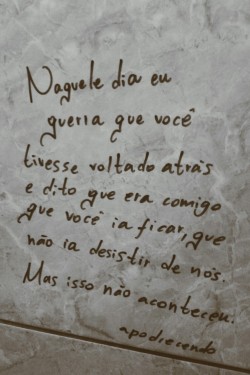 Naquele dia eu
queria que você
tivesse voltado atrás
e dito que era comigo
que você ia ficar, que
não ia desistir de nós.
Mas isso não aconteceu.
apodrecendo